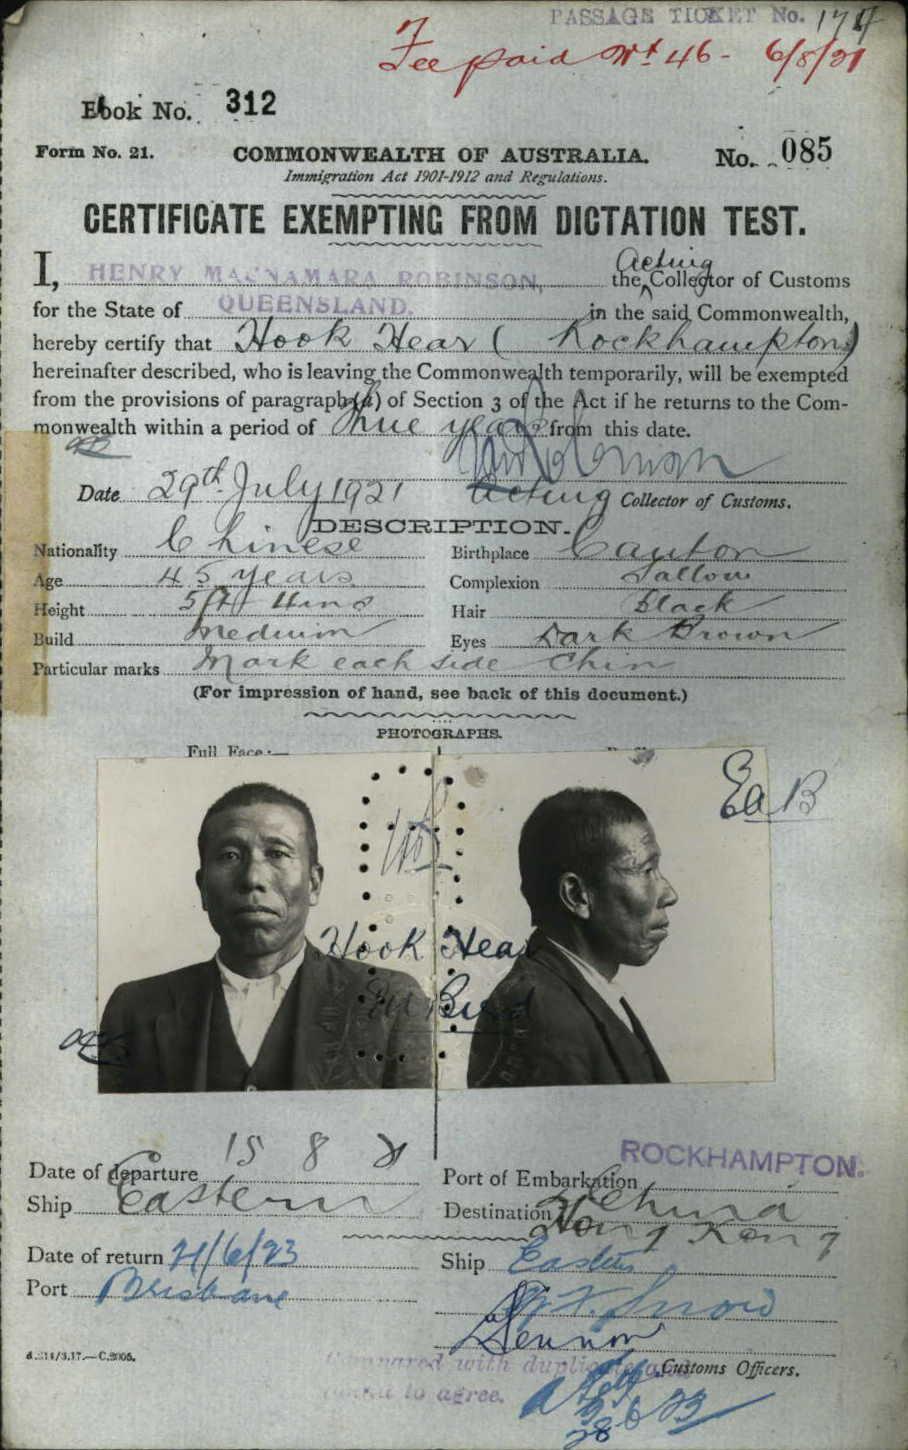 PASSAGE TICKET No. 174
Fee paid No 46 - 6/8/21
Book No. 312
Form No. 21. COMMONWEALTH OF AUSTRALIA. No. 085
Immigration Act 1901-1912 and Regulations.
CERTIFICATE EXEMPTING FROM DICTATION TEST.
I, HENRY MACNAMARA ROBINSON, the Acting Collector of Customs
for the State of QUEENSLAND. in the said Commonwealth,
hereby certify that Hook Hear (Rockhampton)
hereinafter described, who is leaving the Commonwealth temporarily, will be exempted
from the provisions of paragraph (a) of Section 3 of the Act if he returns to the Com-
monwealth within a period of Three years from this date.
Date 29th July 1921 Acting Collector of Customs.
DESCRIPTION.
Nationality Chinese Birthplace Canton
Age 45 years Complexion Sallow
Height 5ft 4ins Hair Black
Build Medium Eyes Dark Brown
Particular marks Mark each side Chin
(For impression of hand, see back of this document.)
PHOTOGRAPHS.
Full Face:—
Hook Hear
Date of departure 15 8 21 Port of Embarkation ROCKHAMPTON.
Ship Eastern Destination China
Hong Kong
Date of return 21/6/23 Ship Eastern
Port Brisbane
Customs Officers.
A.214/3.17.—C.2005.
Compared with duplicate and
found to agree.
28 6 23